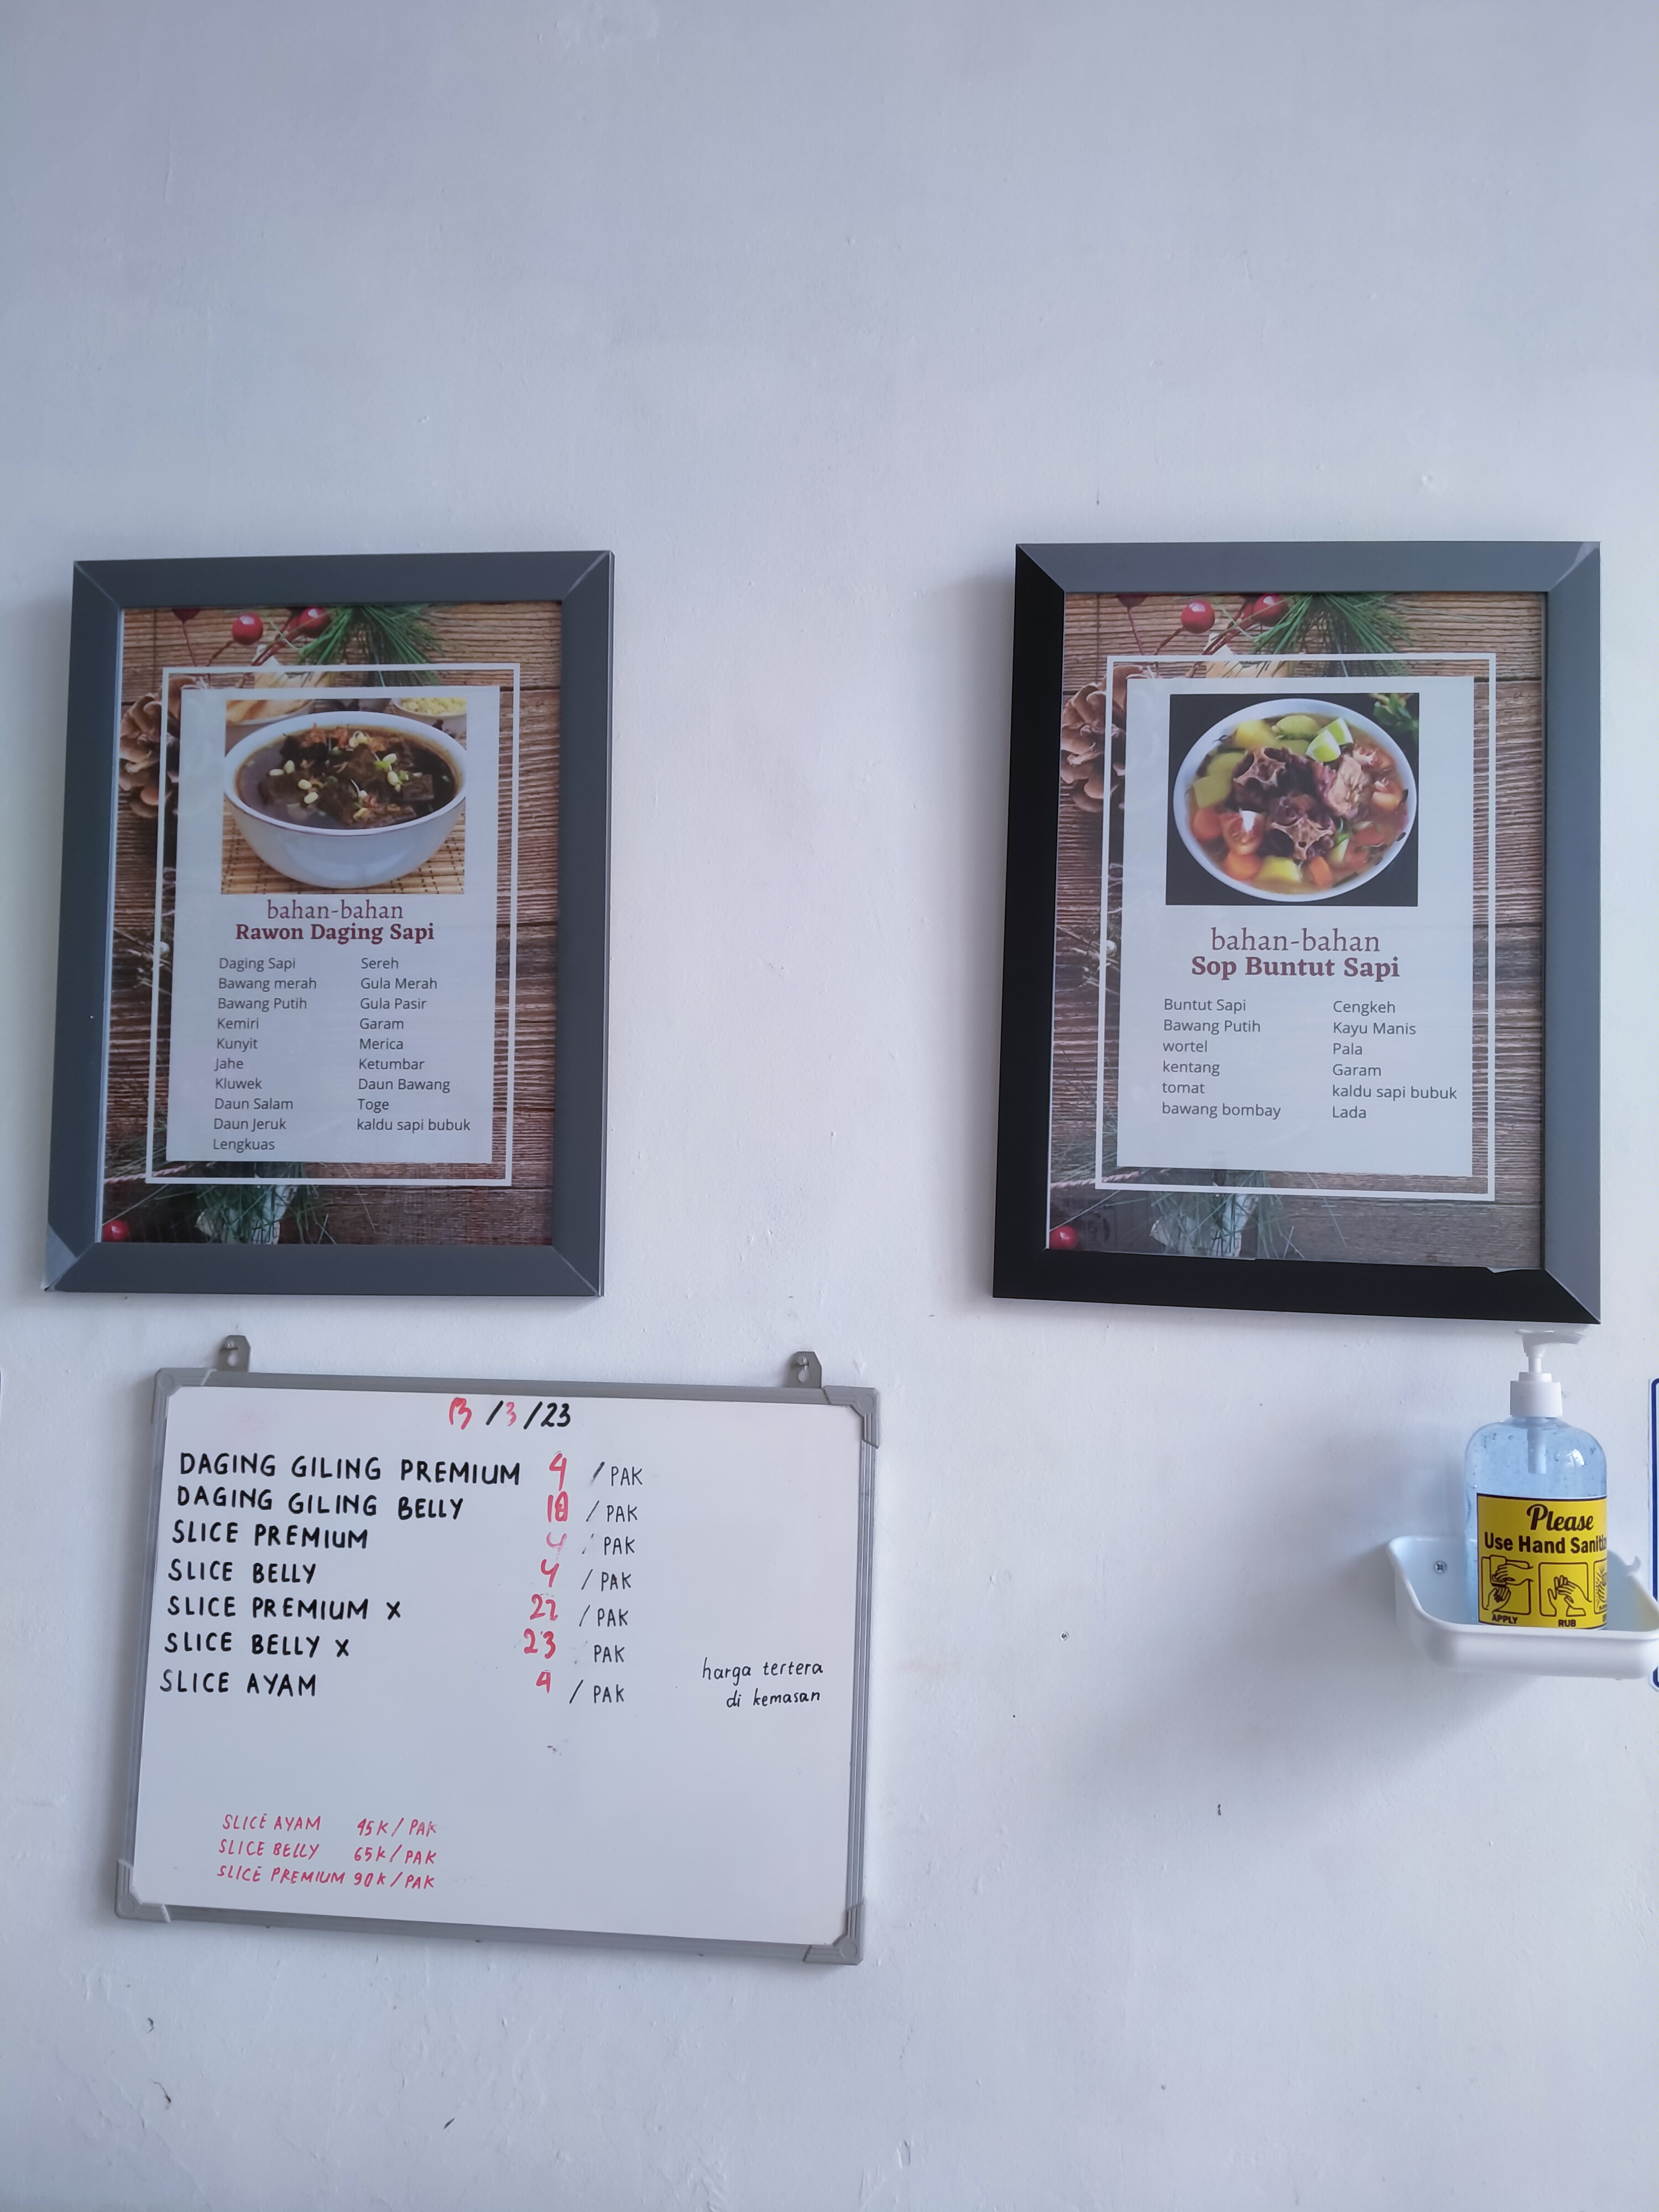 bahan-bahan
Rawon Daging Sapi
Daging Sapi
Bawang merah
Bawang Putih
Kemiri
Kunyit
Jahe
Kluwek
Daun Salam
Daun Jeruk
Lengkuas
Sereh
Gula Merah
Gula Pasir
Garam
Merica
Ketumbar
Daun Bawang
Toge
kaldu sapi bubuk
bahan-bahan
Sop Buntut Sapi
Buntut Sapi
Bawang Putih
wortel
kentang
tomat
bawang bombay
Cengkeh
Kayu Manis
Pala
Garam
kaldu sapi bubuk
Lada
/3/23
DAGING GILING PREMIUM /PAK
DAGING GILING BELLY /PAK
SLICE PREMIUM 4 PAK
SLICE BELLY 4 /PAK
SLICE PREMIUM X /PAK
SLICE BELLY X 23 PAK
SLICE AYAM /PAK
harga tertera
di kemasan
SLICE AYAM 45K/PAK
SLICE BELLY 65K/PAK
SLICE PREMIUM 90K/PAK
Please
Use Hand
APPLY
RUB